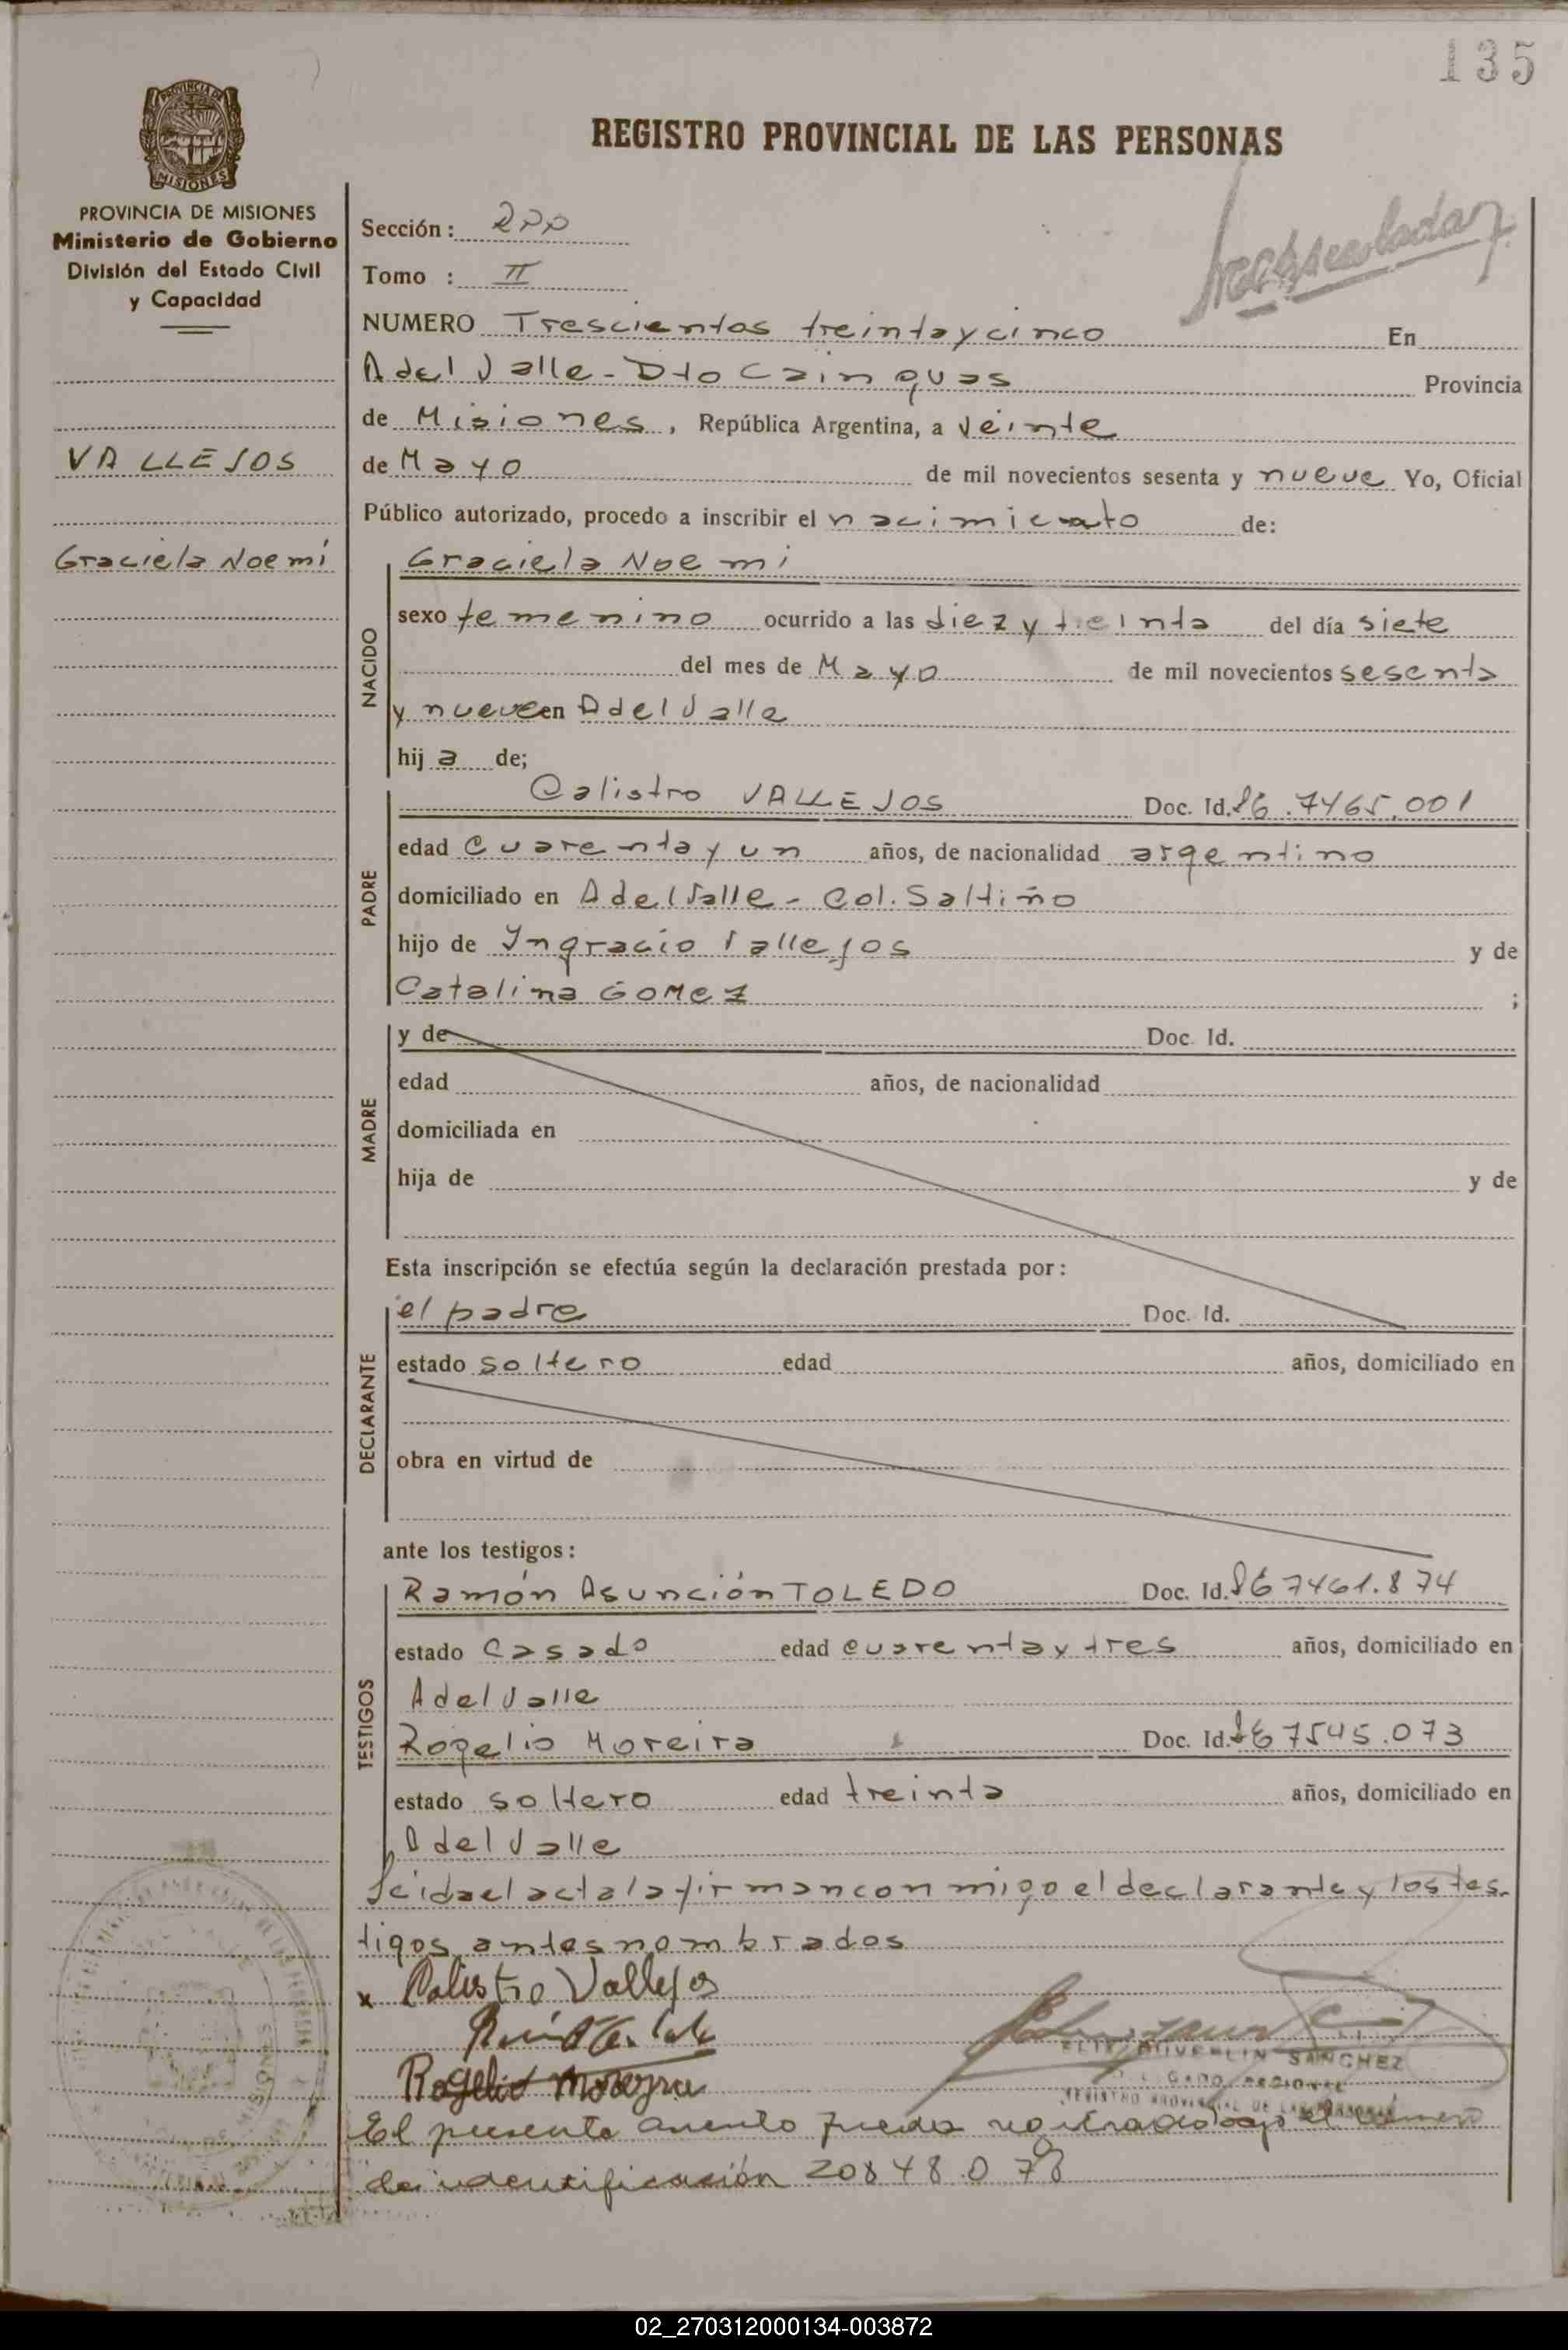 135
PROVINCIA DE
MISIONES
REGISTRO PROVINCIAL DE LAS PERSONAS
PROVINCIA DE MISIONES
Ministerio de Gobierno
División del Estado Civil
y Capacidad
VALLEJOS
Graciela Noemí
Sección :
Tomo : II
NUMERO Trescientos treinta y cinco En
A del Valle - Dto Cainguas Provincia
de Misiones, República Argentina, a veinte
de Mayo de mil novecientos sesenta y nueve Yo, Oficial
Público autorizado, procedo a inscribir el nacimiento de:
NACIDO
Graciela Noemi
sexo femenino ocurrido a las diez y treinta del día siete
del mes de Mayo de mil novecientos sesenta
y nueve en A del Valle
hij a de;
PADRE
Calistro VALLEJOS Doc. Id. 7465.001
edad cuarenta y un años, de nacionalidad argentino
domiciliado en A del Valle - Col. Saltiño
hijo de Yngracio Vallejos y de
Catalina GOMez ;
MADRE
y de Doc. Id.
edad años, de nacionalidad
domiciliada en
hija de y de
Esta inscripción se efectúa según la declaración prestada por :
DECLARANTE
el padre Doc. Id.
estado soltero edad años, domiciliado en
obra en virtud de
ante los testigos :
TESTIGOS
Ramón Asunción TOLEDO Doc. Id. 7461.874
estado casado edad cuarenta y tres años, domiciliado en
A del Valle
Rogelio Moreira Doc. Id. 7545.073
estado soltero edad treinta años, domiciliado en
A del Valle
Leida el acta la firman conmigo el declarante y los tes-
tigos antes nombrados
x Calistro Vallejos
Rogelio Moreyra
SANCHEZ
El presente asiento queda registrado bajo el número
de identificación 20848.078
02_270312000134-003872